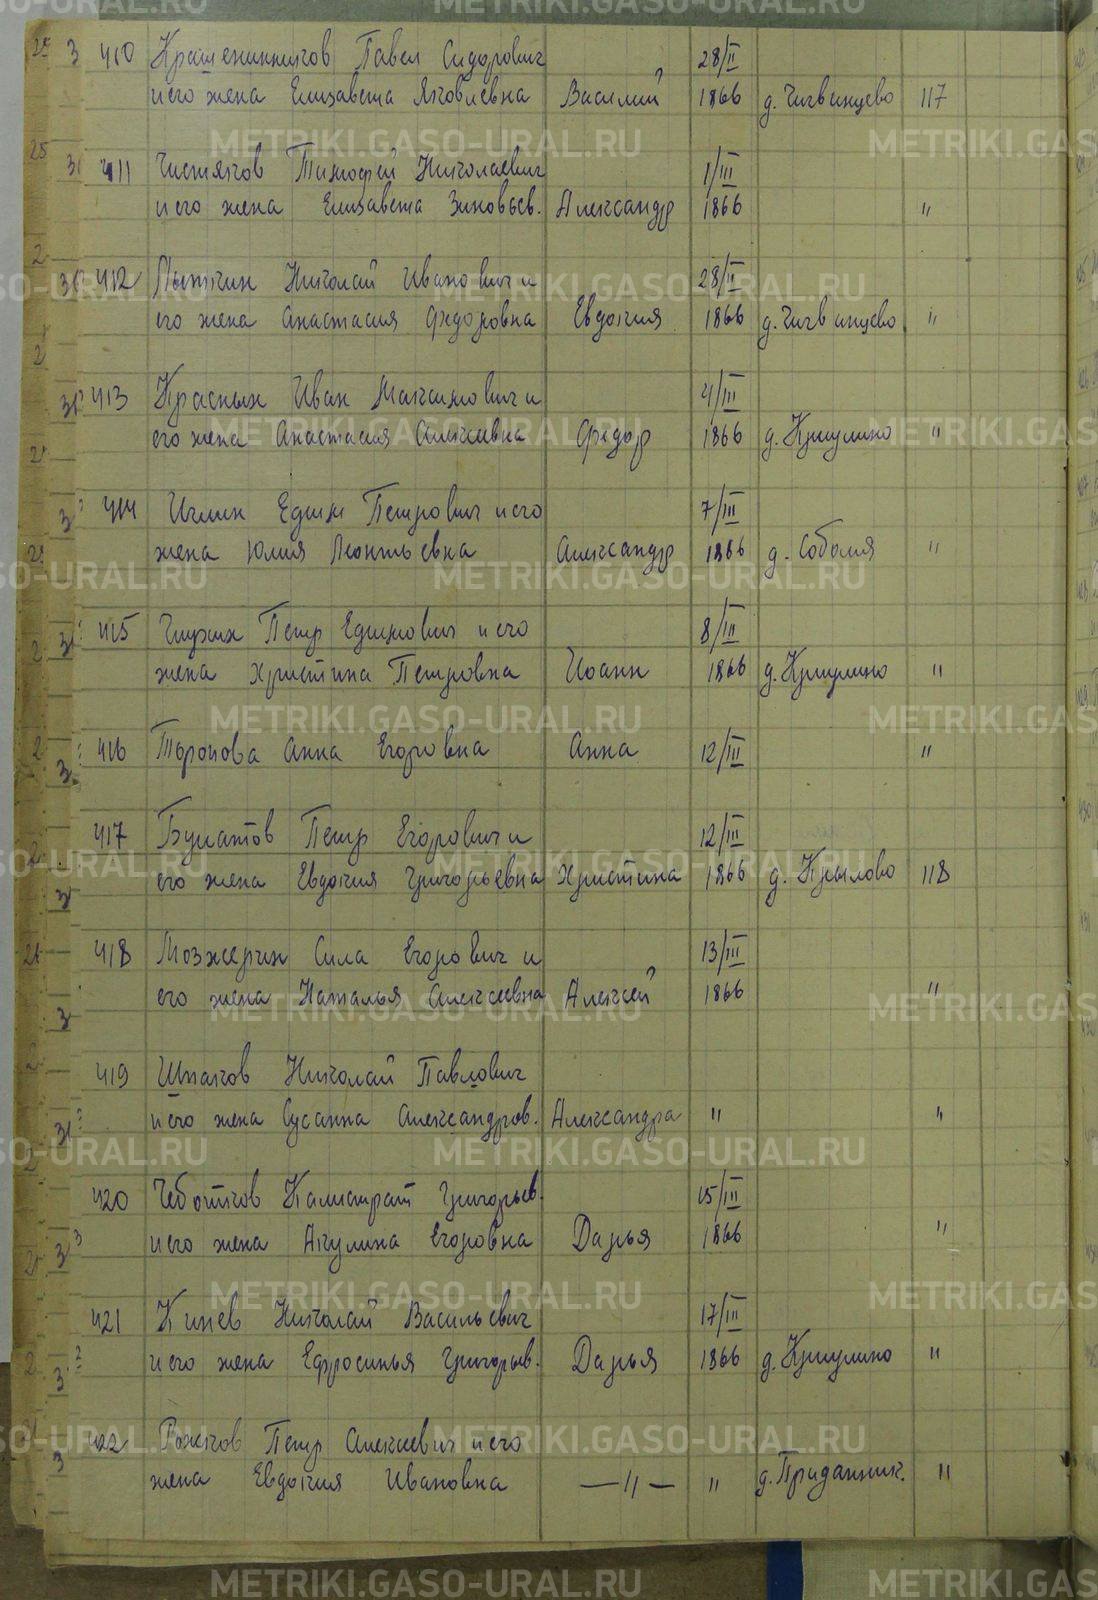 410 Крашенинников Павел Сидорович 28/II
и его жена Елизавета Яковлевна Василий 1866 д. Чигвинцево 117
411 Чистяков Тимофей Николаевич 1/III
и его жена Елизавета Зиновьев. Александр 1866 "
412 Пыткин Николай Иванович и 28/II
его жена Анастасия Федоровна Евдокия 1866 д. Чигвинцево "
413 Красных Иван Максимович и 4/III
его жена Анастасия Алексеевна Федор 1866 д. Криулино "
414 Иглин Едим Петрович и его 7/III
жена Юлия Леонтьевна Александр 1866 д. Соболя "
415 Петр Едимович и его 8/III
жена Христина Петровна Иоанн 1866 д. Криулино "
416 Торопова Анна Егоровна Анна 12/III "
417 Булатов Петр Егорович и 12/III
его жена Евдокия Григорьевна Христина 1866 д. Крылово 118
418 Мозжерин Сила Егорович и 13/III
его жена Наталья Алексеевна Алексей 1866 "
419 Шпаков Николай Павлович
и его жена Сусанна Александров. Александра " "
420 Чеботков Калистрат Григорьев. 15/III
и его жена Акулина Егоровна Дарья 1866 "
421 Кинев Николай Васильевич 17/III
и его жена Ефросинья Григорьев. Дарья 1866 д. Криулино "
422 Рожков Петр Алексеевич и его
жена Евдокия Ивановна — " — " д. Приданник. "
METRIKI.GASO-URAL.RU